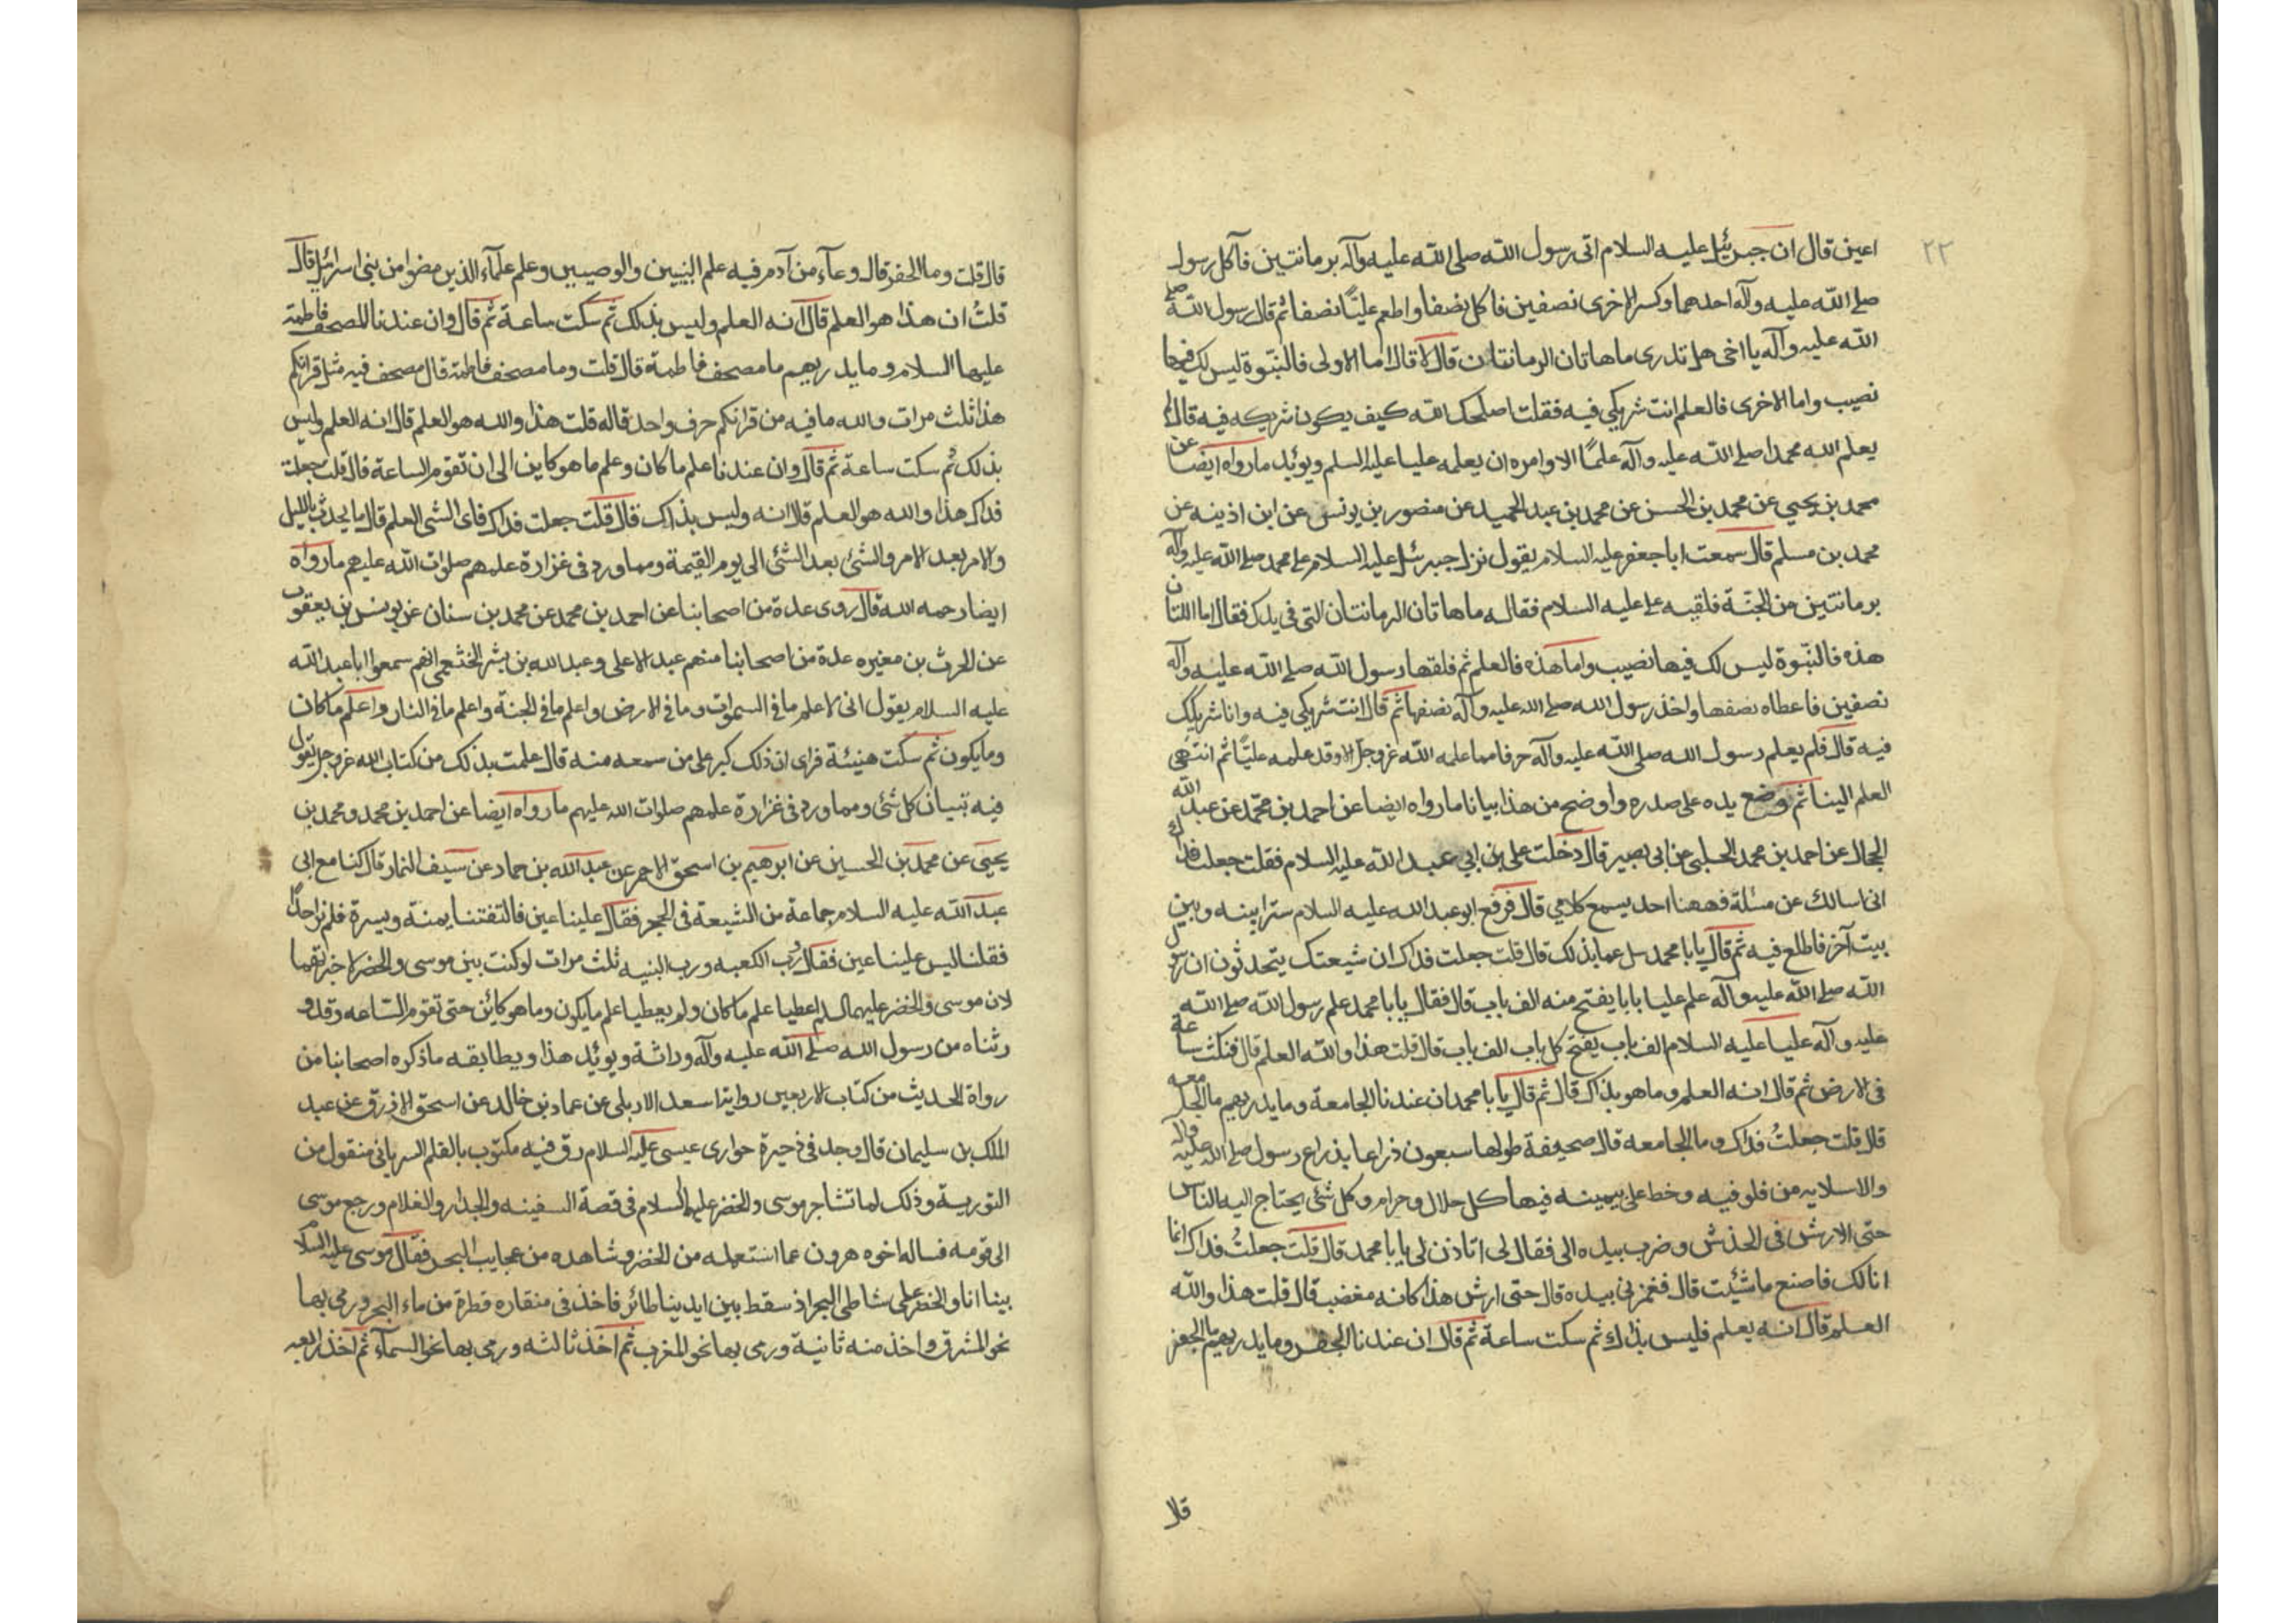 ٢٢
اعين قال ان جبرئيل عليه السلام اتى رسول الله صلى الله عليه وآله برمانتين فآكل رسول
صلى الله عليه وآله احدهما وكسر الاخرى نصفين فاكل نصفا واطعم عليًّا نصفا ثم قال رسول الله صلى
الله عليه وآله يا اخى هل تدرى ما هاتان الرمانتان قال لا قال اما الاولى فالنبّوة ليس لك فيها
نصيب واما الاخرى فالعلم انت شريكي فيه فقلت اصلحك الله كيف يكون شريكه فيه قال لم
يعلم الله محمدا صلى الله عليه وآله علمًا الا وامره ان يعلمه عليا عليه السلم ويوئد ما رواه ايضا عن
محمد بن يحيى عن محمد بن الحسن عن محمد بن عبد الحميد عن منصور بن يونس عن ابن اذينه عن
محمد بن مسلم قال سمعت ابا جعفر عليه السلام يقول نزل جبرئيل عليه السلام على محمد صلى الله عليه وآله
برمانتين من الجنّة فلقيه على عليه السلام فقال له ما هاتان الرمانتان التى فى يدك فقال اما
هذه فالنبّوة ليس لك فيها نصيب واما هذه فالعلم ثم فلقها رسول الله صلى الله عليه وآله
نصفين فاعطاه نصفها واخذ رسول الله صلى الله عليه وآله نصفها ثم قال انت شريكي فيه وانا شريكك
فيه قال فلم يعلم رسول الله صلى الله عليه وآله حرفا مما علمه الله عز وجل الا وقد علمه عليًّا ثم انتهى
العلم الينا ثم وضع يده على صدره واوضح من هذا بيانا ما رواه ايضا عن احمد بن محمّد عن عبد الله
الحجال عن احمد بن محمد الحلبى عن ابى بصير قال دخلت على بن ابي عبد الله عليه السلام فقلت جعلت فداك
انى اسالك عن مسئلة فههنا احد يسمع كلامي قال فرفع ابو عبد الله عليه السلام سترا بينه وبين
بيت آخر فاطلع فيه ثم قال يابا محمد سل عما بذلك قال قلت جعلت فداك ان شيعتك يتحدثون ان رسول
الله صلى الله عليه وآله علم عليا بابا يفتح منه الف باب قال فقال يابا محمد علم رسول الله صلى الله
عليه وآله عليا عليه السلام الف باب يفتح كل باب الف باب قال قلت هذا والله العلم قال فنكث ساعة
فى الارض ثم قال انه العلم وما هو بذاك قال ثم قال يابا محمد ان عندنا الجامعة وما يدريهم ما الجامعه
قال قلت جعلتُ فداك وما الجامعه قال صحيفة طولها سبعون ذراعا بذراع رسول صلى الله عليه وآله
والاسلايه من فلو فيه وخط على بيمينه فيها كل حلال وحرام وكل شئ يحتاج اليه الناس
حتى الارش فى الخدش وضرب بيده الى فقال لى اتاذن لى يابا محمد قال قلت جعلتُ فداك انما
انا لك فاصنع ما شيئت قال فغمزنى بيده قال حتى ارش هذا كانه مغضب قال قلت هذا والله
العلم قال انه يعلم فليس بذاك ثم سكت ساعة ثم قال ان عندنا الجفر وما يدريهم الجفر
قال
قال قلت وما الجفر قال وعآء من آدم فيه علم النبيين والوصيين وعلم علمآء الذين مضوا من بنى اسرائيل قال
قلتُ ان هذا هو العلم قال انه العلم وليس بذلك ثم سكت ساعة ثم قال وان عندنا لمصحف فاطمة
عليها السلام وما يدريهم ما مصحف فاطمة قال قلت وما مصحف فاطمة قال مصحف فيه مثل قرانكم
هذا ثلث مرات والله ما فيه من قرانكم حرف واحد قاله قلت هذا والله هو العلم قال انه العلم وليس
بذلك ثم سكت ساعة ثم قال وان عندنا علم ما كان وعلم ما هو كاين الى ان تقوم الساعة قال قلت جعلت
فداك هذا والله هو العلم قال انه وليس بذاك قال قلت جعلت فداك فاى الشى العلم قال ما يحدث بالليل
والامر بعد الامر والشئ بعد الشئ الى يوم القيمة ومما ورد فى غزارة علمهم صلوات الله عليهم ما رواه
ايضا رحمه الله قال روى عدة من اصحابنا عن احمد بن محمد عن محمد بن سنان عن يونس بن يعقوب
عن الحرث بن مغيره عدة من اصحابنا منهم عبد الاعلى وعبد الله بن بشر الخثعمى انهم سمعوا ابا عبد الله
عليه السلام يقول انى لاعلم ما فى السموات وما فى الارض واعلم ما فى الجنة واعلم ما فى النار واعلم ما كان
وما يكون ثم سكت هنيئة فراى ان ذلك كبر على من سمعه منه قال علمت بذلك من كتاب الله عز وجل يقول
فيه تبيان كل شئ ومما ورد فى غزارة علمهم صلوات الله عليهم ما رواه ايضا عن احمد بن محمد ومحمد بن
يحيى عن محمد بن الحسين عن ابرهيم بن اسحق الاحمر عن عبد الله بن حماد عن سيف التمار قال كنا مع ابى
عبد الله عليه السلام جماعة من الشيعة فى الحجر فقال علينا عين فالتفتنا يمنة ويسرة فلم نر احدًا
فقلنا ليس علينا عين فقال رب الكعبه ورب البنيه ثلث مرات لو كنت بين موسى والخضر لاخبرتهما
لان موسى والخضر عليهما السلم اعطيا علم ما كان ولم يعطيا علم ما يكون وما هو كائن حتى تقوم الساعه وقد و
رثناه من رسول الله صلى الله عليه وآله وراثة ويوئد هذا ويطابقه ما ذكره اصحابنا من
رواة الحديث من كتاب الاربعين رواية اسعد الاربلى عن عماد بن خالد عن اسحق الازرق عن عبد
الملك بن سليمان قال وجد فى ذخيرة حوارى عيسى عليه السلام رق فيه مكتوب بالقلم السريانى منقول من
التوريه وذلك لما تشاجر موسى والخضر عليهما السلام فى قصة السفينه والجدار والغلام ورجع موسى
الى قومه فساله اخوه هرون عما استعمله من الخضر وشاهده من عجايب البحر فقال موسى عليه السلام
بينا انا والخضر على شاطى البحر اذ سقط بين ايدينا طائر فاخذ فى منقاره قطرة من ماء البحر ورمى بها
نحو المشرق واخذ منه ثانية ورمى بها نحو المغرب ثم اخذ ثالثه ورمى بها نحو السمآء ثم اخذ رابعه